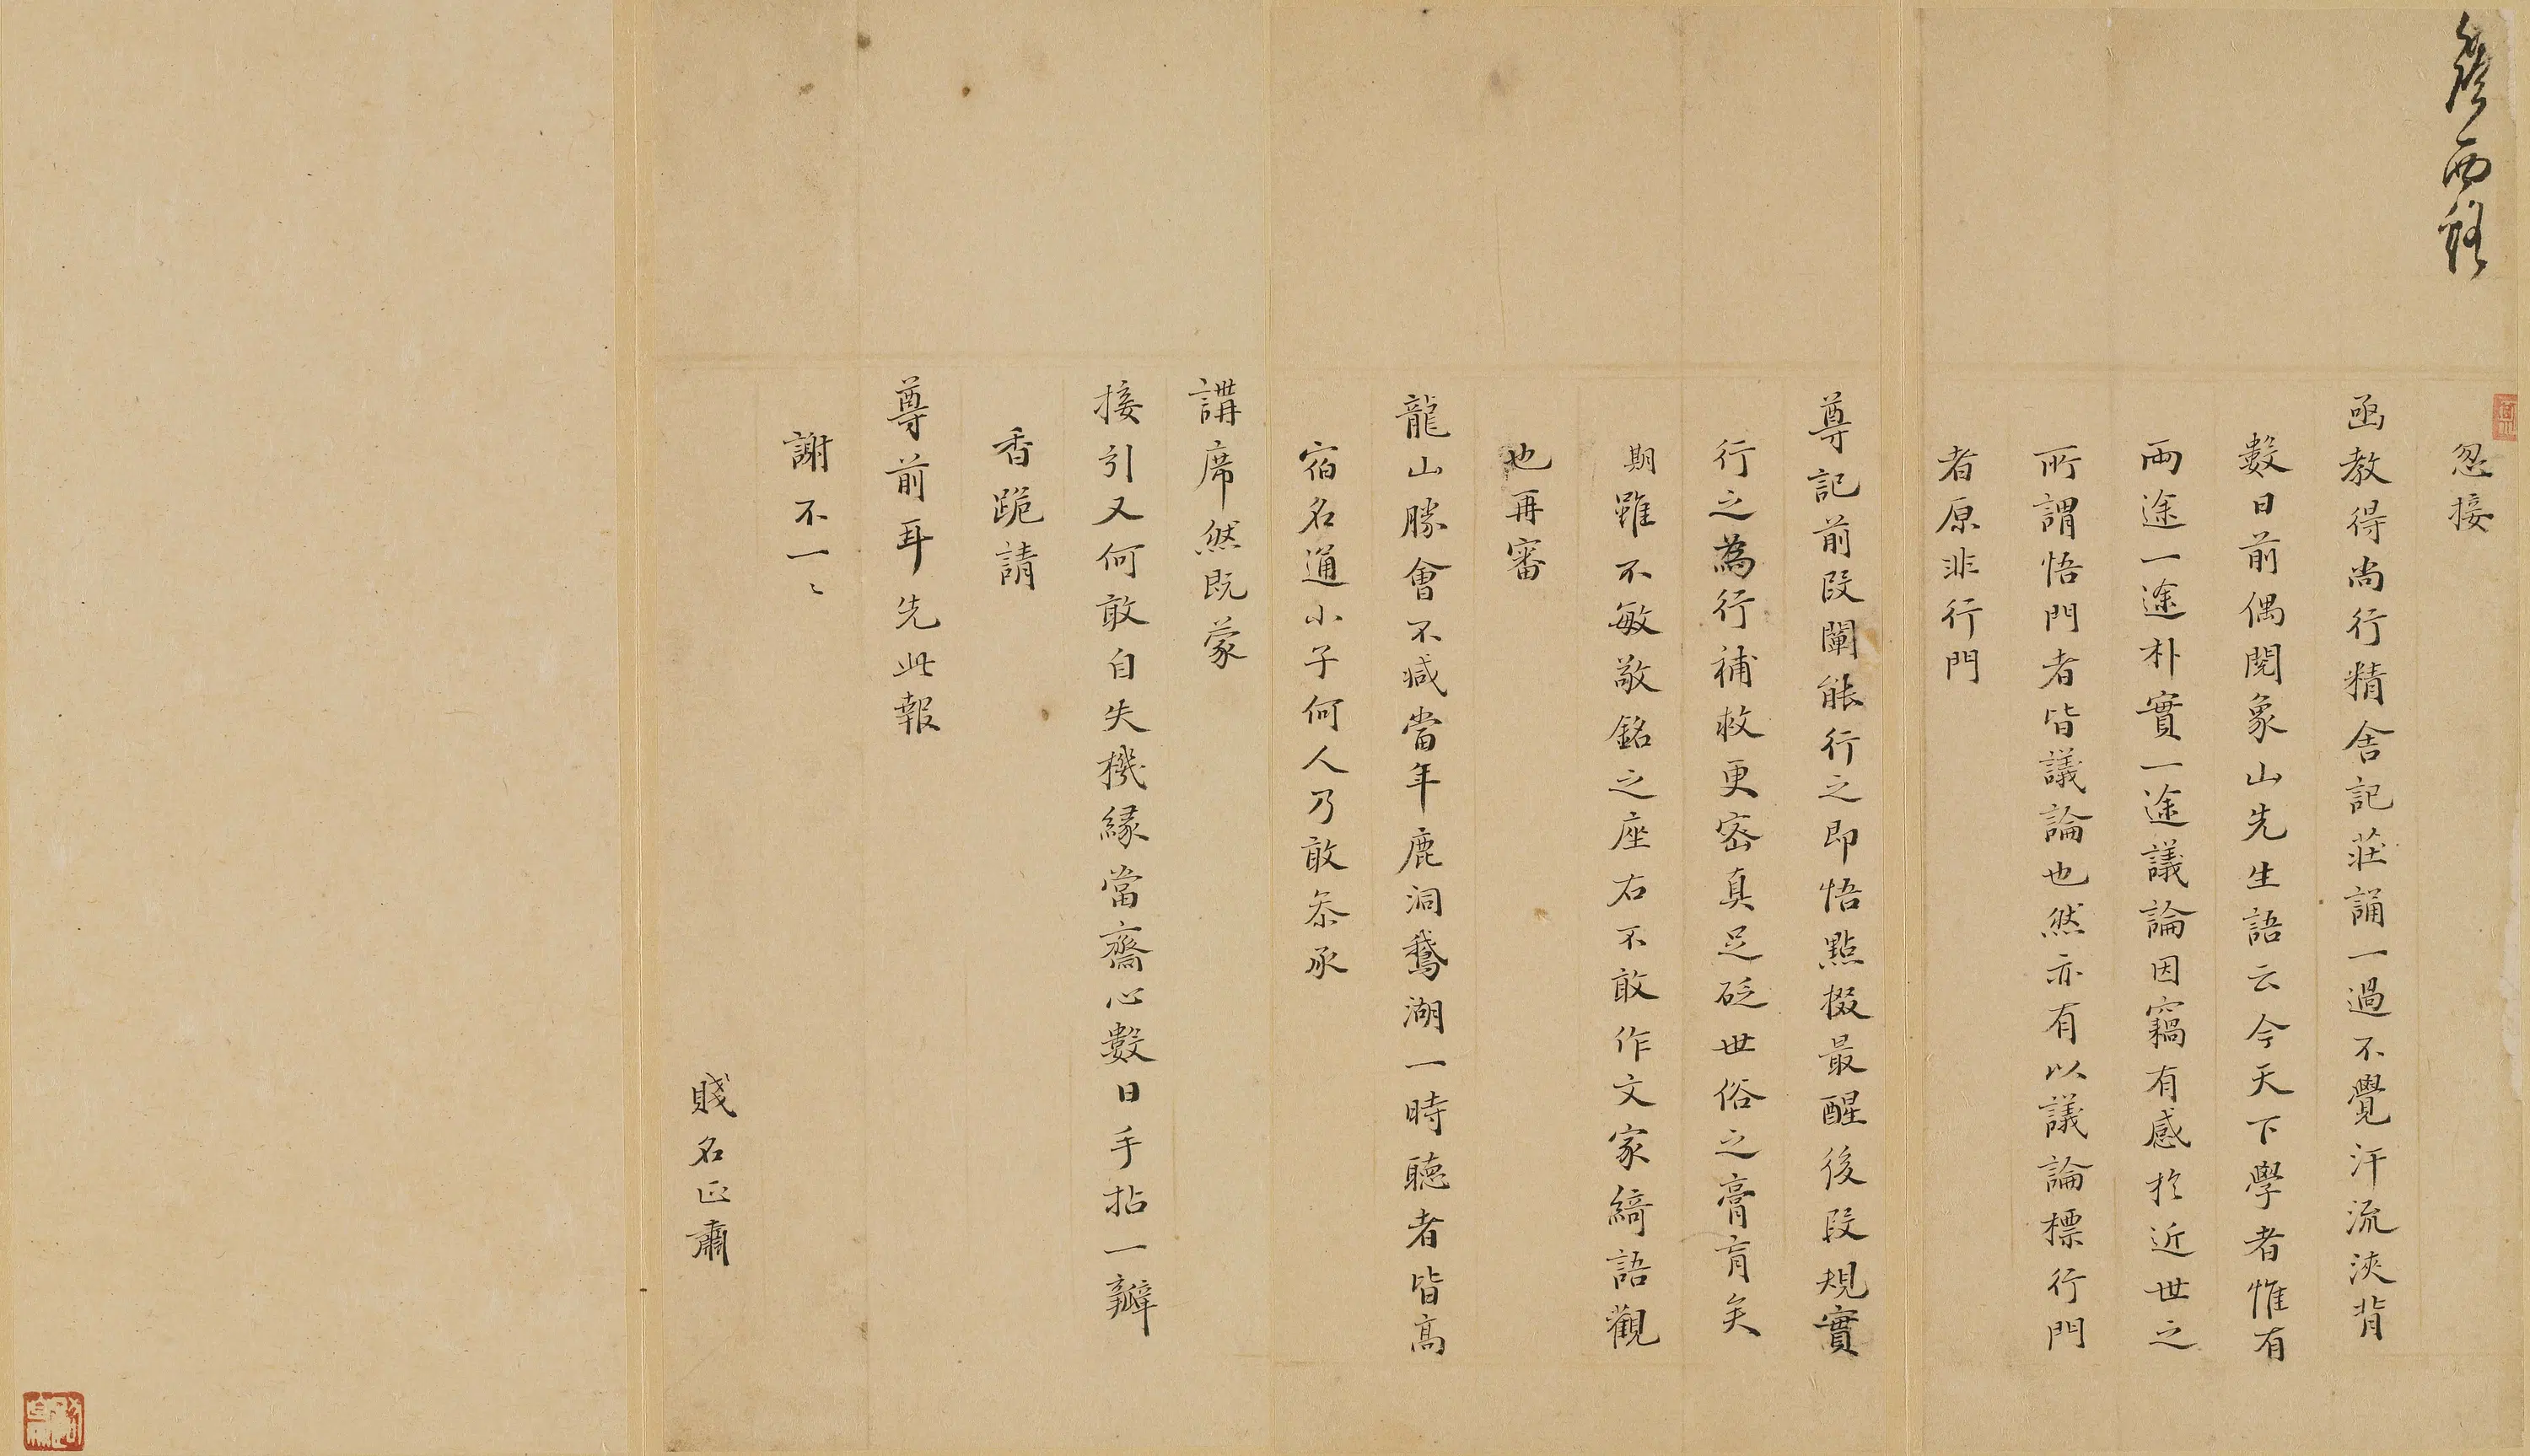 忽接
函教得尚行精舍記莊誦一過不覺汗流浹背
數日前偶閱象山先生語云今天下學者惟有
兩途一途朴實一途議論因竊有感於近世之
所謂悟門者皆議論也然亦有以議論標行門
者原非行門
尊記前段闡能行之即悟點掇最醒後段規實
行之為行補救更密真足砭世俗之膏肓矣
期雖不敏敬銘之座右不敢作文家綺語觀
也再審
龍山勝會不减當年鹿洞鵝湖一時聽者皆高
宿名通小子何人乃敢忝承
講席然既蒙
接引又何敢自失機緣當齋心數日手拈一瓣
香跪請
尊前耳先此報
謝不一〻
賤名正肅